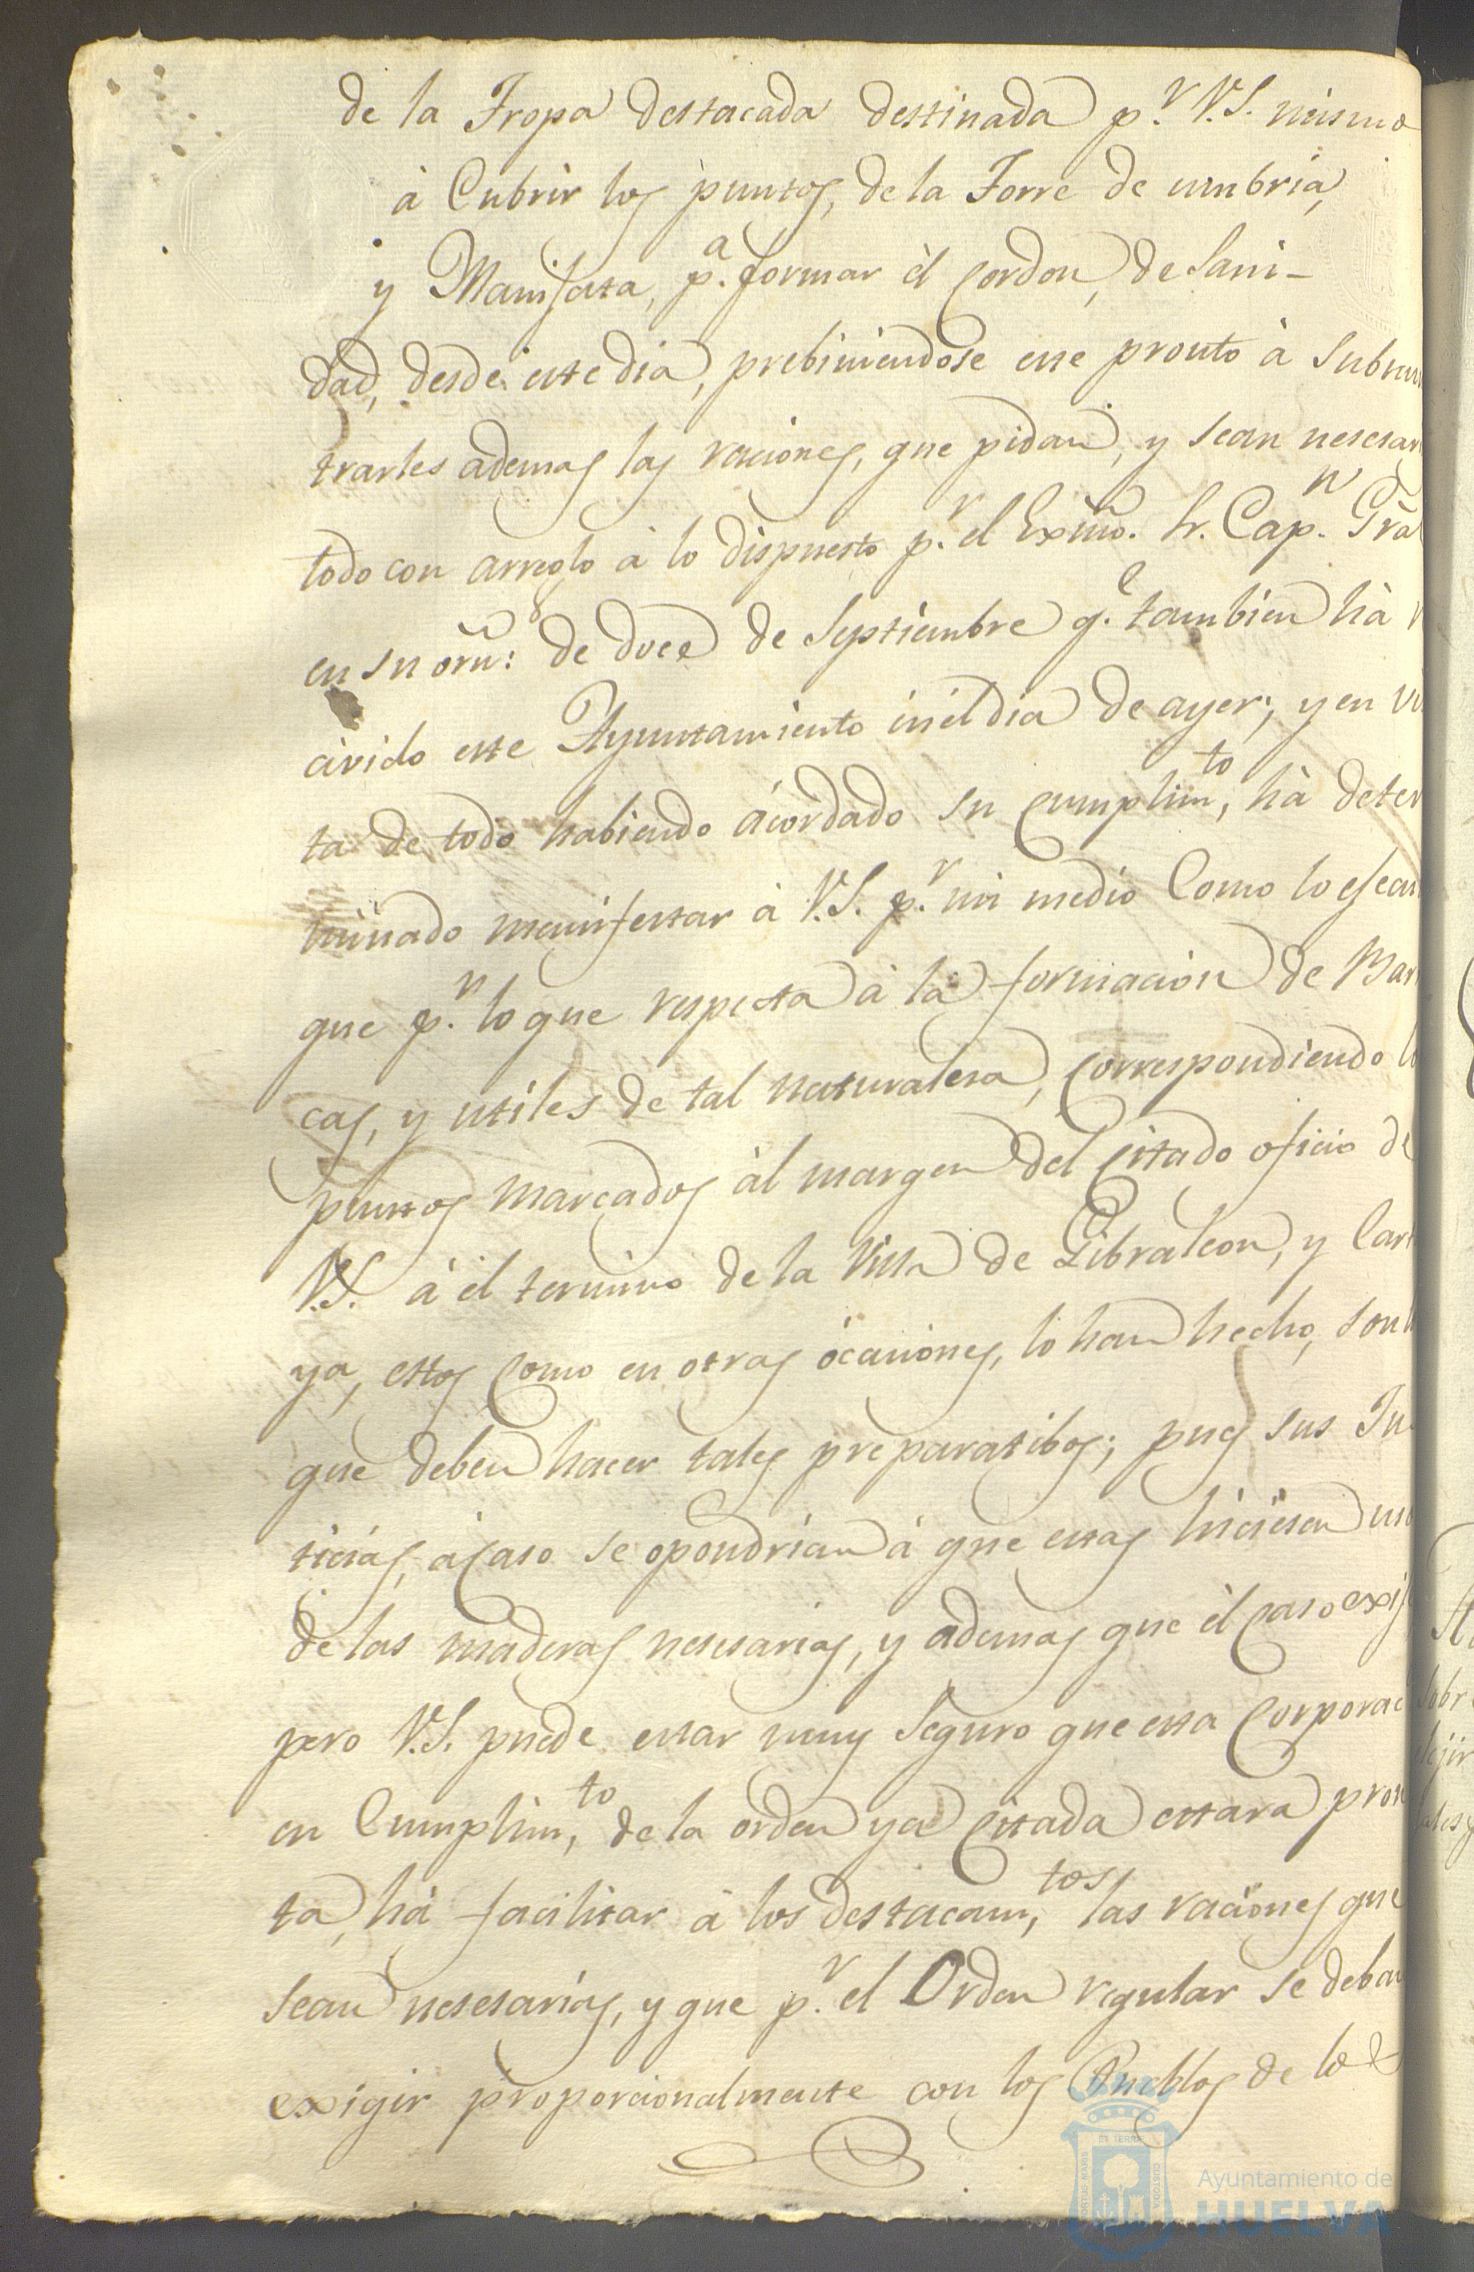 de la Tropa destacada destinada p.r V.S. mismo
à Cubrir los puntos, de la Torre de umbria,
y Manifata, p.a formar èl Cordon, de Sani-
dad, desde este dia, prebiniendose este pronto à Submi
trarles ademas las raciones, que pidan, y sean nescesar
todo con arreglo à lo dispuesto p.r el Exmõ. Sr. Cap.n Grãl
en su orñ: de doce de Septiembre q.e tambien hà r
civido este Ayuntamiento en èl dia de ayer; y en vi
ta de todo habiendo ácordado su Cumplim,to hà deter
minado manifestar à V.S. p.r mi medio Como lo efecu
que p.r lo que respecta à la formacion de Bar
cas, y utiles de tal naturalesa, Correspondiendo lo
puntos marcados àl margen del Citado oficio de
V.S. à el termino de la Villa de Gibraleon, y Cart
ya, estos Como en otras ócaciones, lo han hecho, son l
que deben hacer tales preparatibos; pues sus Ju
ticias, àCaso se opondrian à que estas hiciesen uso
de las maderas nesesarias, y ademas que èl Caso exij
pero V.S. puede estar muy Seguro que esta Corporaci
en Cumplim,to de la orden ya Citada estara pron
ta, hà facilitar à los destacam,tos las raciones que
sean nesesarias, y que p.r el Orden regular se deban
exigir proporcionalmente con los Pueblos de lo
Ayuntamiento de
HUELVA